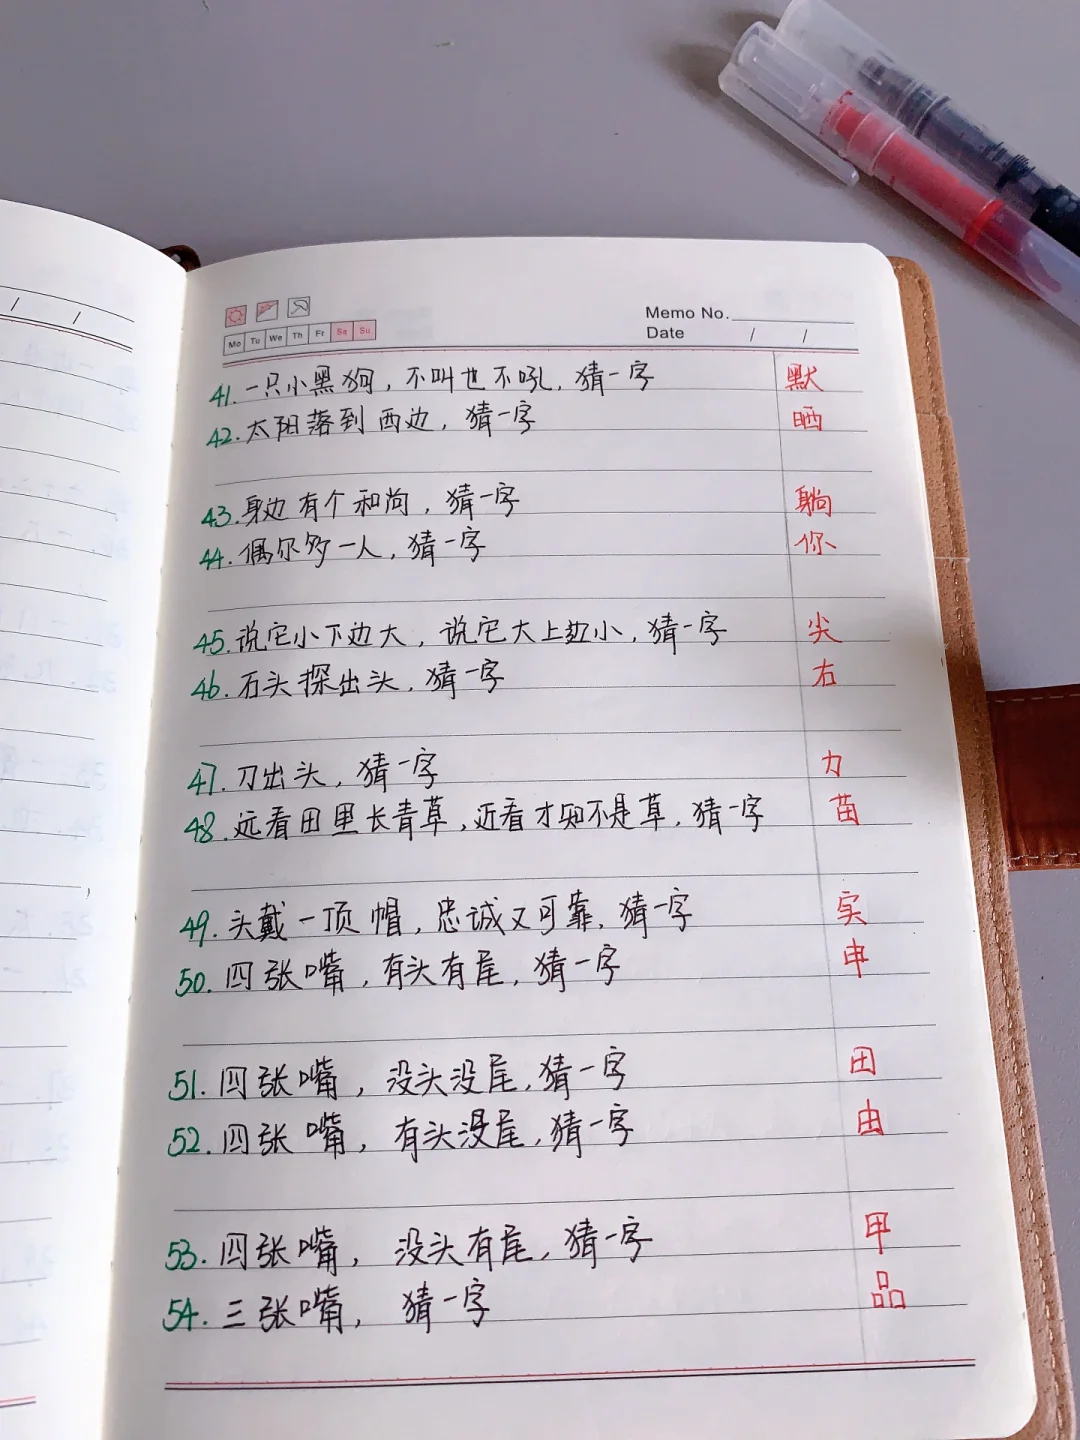 Memo No.
Mo Tu We Th Fr Sa Su
Date / /
41. 一只小黑狗，不叫也不吼，猜一字 默
42. 太阳落到西边，猜一字 晒
43. 身边有个和尚，猜一字 躺
44. 偶尔多一人，猜一字 你
45. 说它小下边大，说它大上边小，猜一字 尖
46. 石头探出头，猜一字 右
47. 刀出头，猜一字 力
48. 远看田里长青草，近看才知不是草，猜一字 苗
49. 头戴一顶帽，忠诚又可靠，猜一字 实
50. 四张嘴，有头有尾，猜一字 申
51. 四张嘴，没头没尾，猜一字 田
52. 四张嘴，有头没尾，猜一字 由
53. 四张嘴，没头有尾，猜一字 甲
54. 三张嘴，猜一字 品